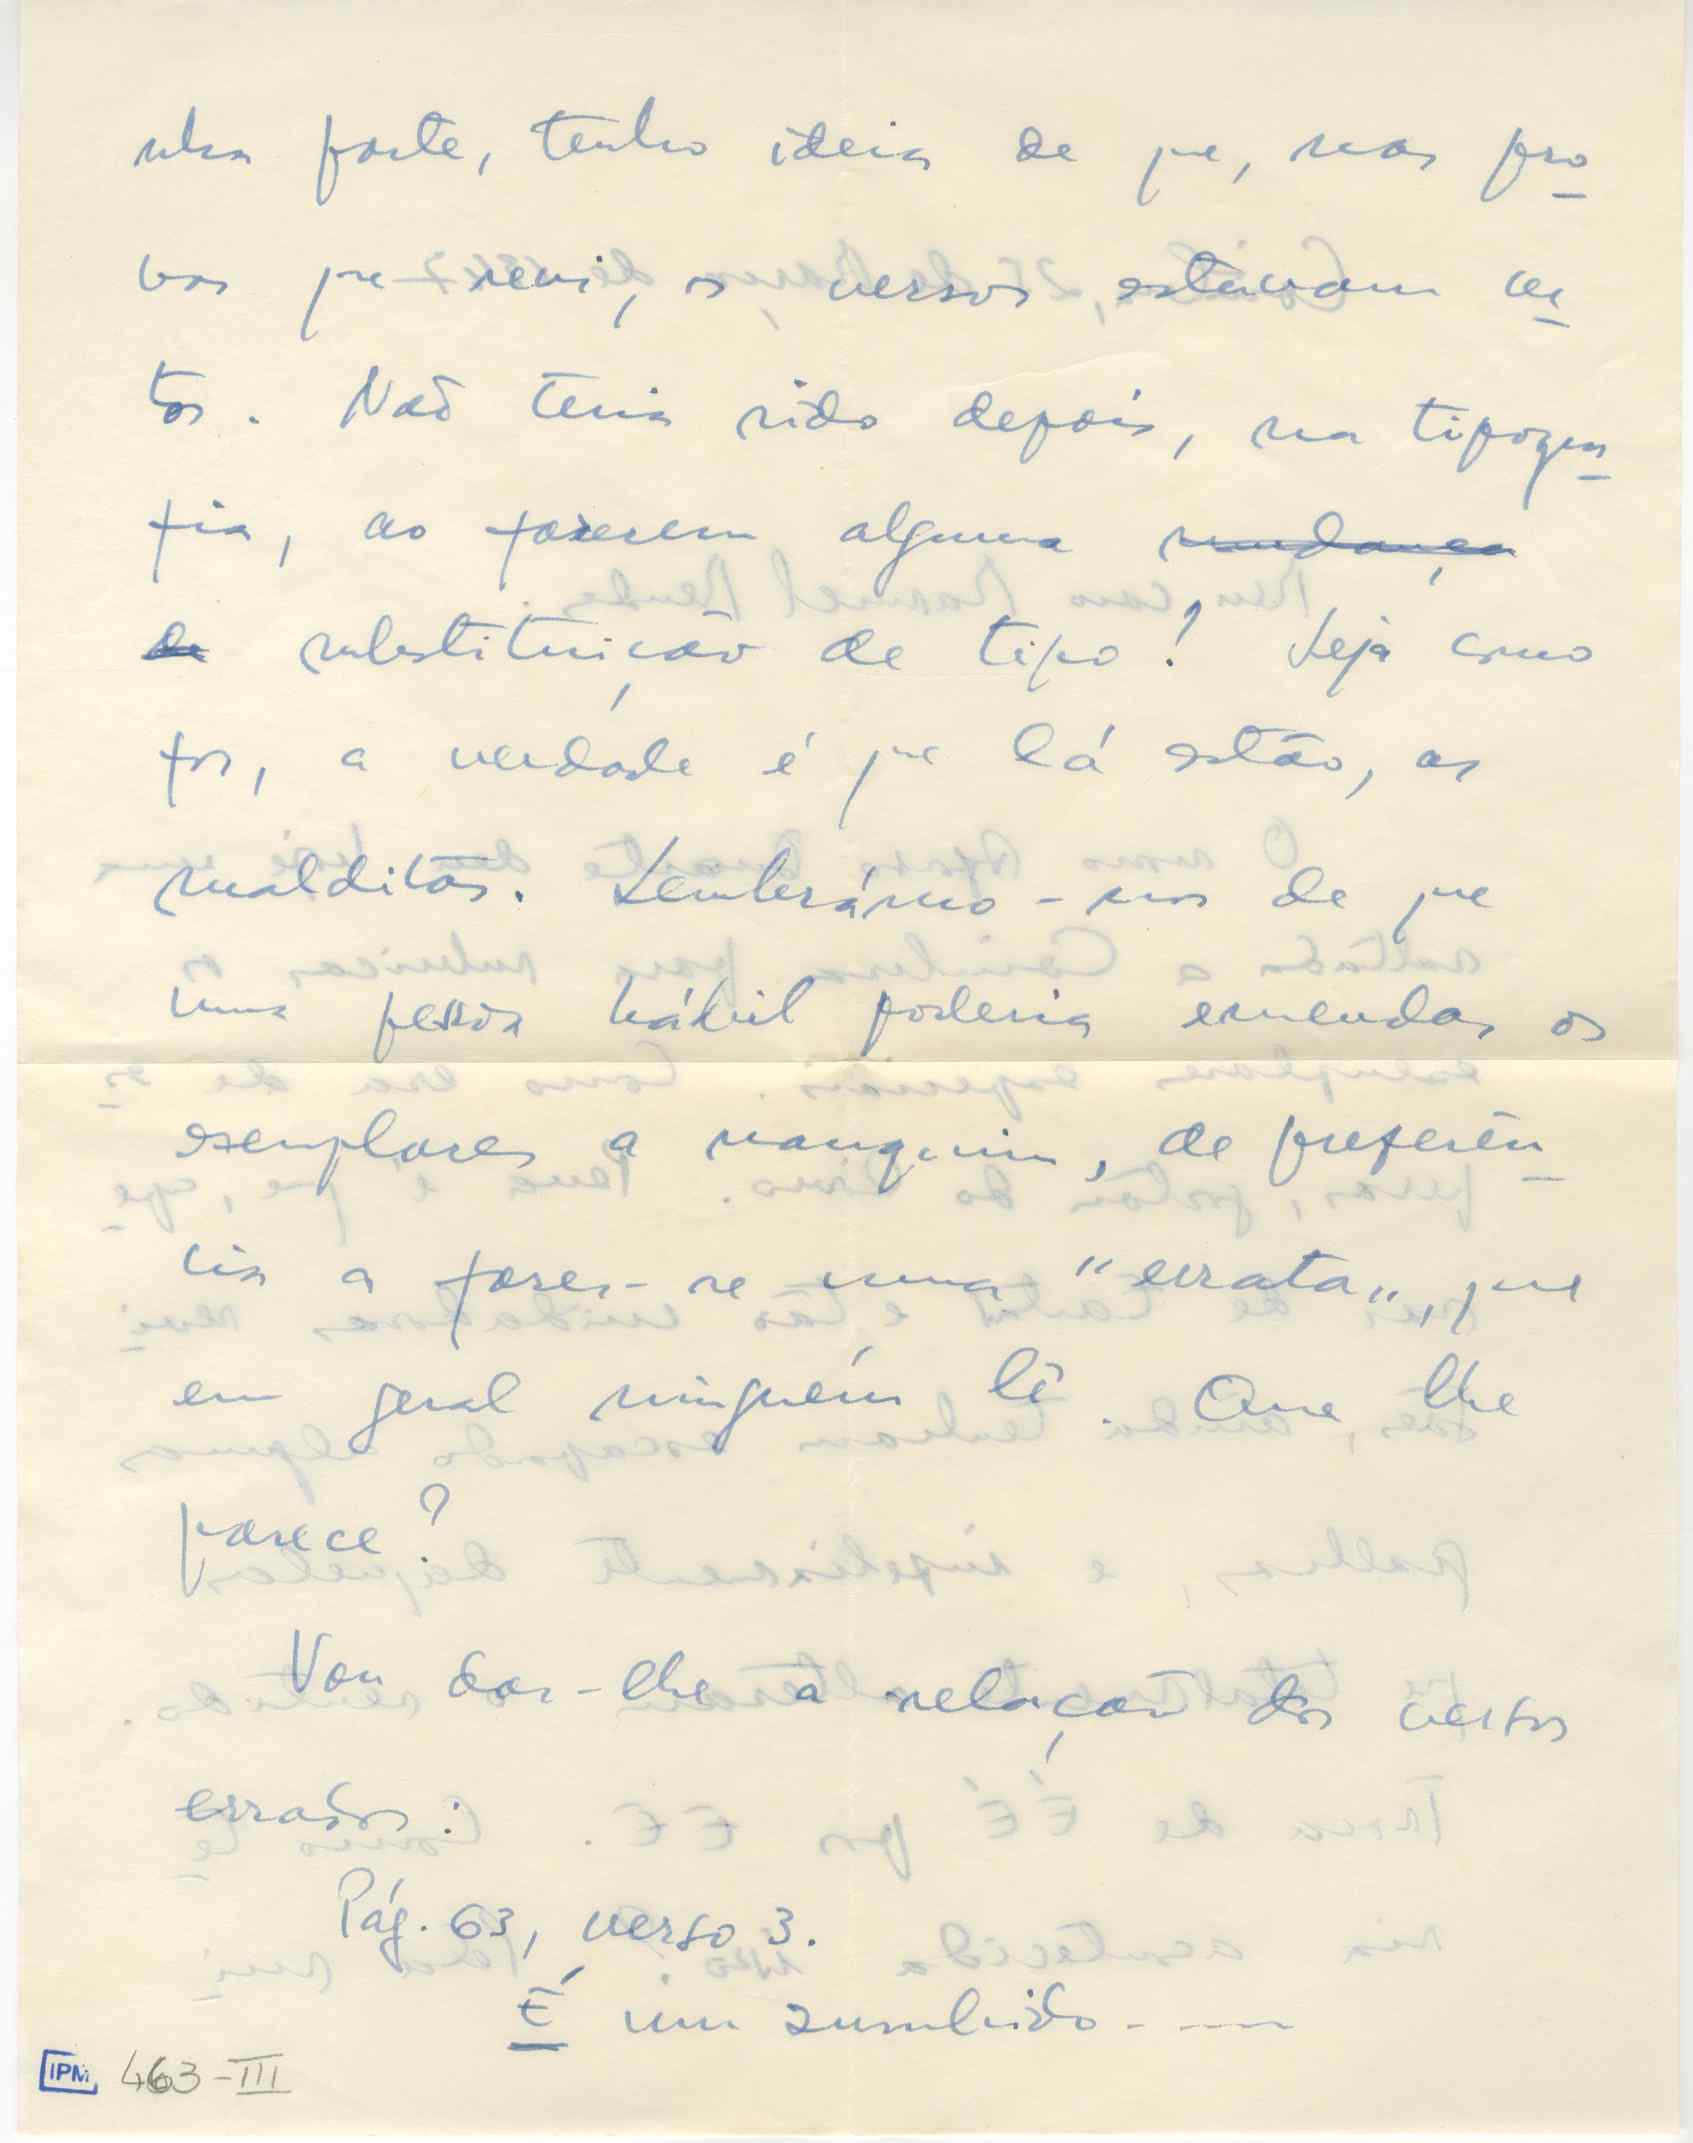 nha parte, tenho ideia de que, nas pro
vas que revi, os versos estavam cer
tos. Não teria sido depois, na tipogra
fia, ao fazerem alguma mudança
de substituição de tipo? Seja como
for, a verdade é que lá estão, as
malditas. Lembrámo-nos de que
uma pessoa hábil poderia emendar os
exemplares a nanquim, de preferên
cia a fazer-se uma "errata", que
em geral ninguém lê. Que lhe
parece?
Vou dar-lhe a relação dos versos
errados:
Pág. 63, verso 3.
É um zumbido - - —
IPM 463-III